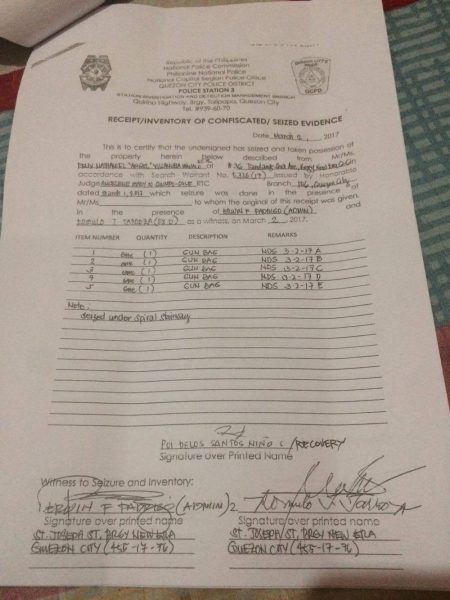 Republic of the Philippines
National Police Commission
Philippine National Police
National Capital Region Police Office
QUEZON CITY POLICE DISTRICT
POLICE STATION 3
STATION INVESTIGATION AND DETECTION MANAGEMENT BRANCH
Quirino Highway, Brgy. Talipapa, Quezon City
Tel. #939-60-70
QCPD
RECEIPT/INVENTORY OF CONFISCATED/ SEIZED EVIDENCE
Date, March 2, 2017
This is to certify that the undersigned has seized and taken possession of
the property herein below described from Mr/Ms.
accordance with Search Warrant No. issued by Honorable
Judge RTC Branch
dated which seizure was done in the presence of
Mr/Ms to whom the original of this receipt was given,
In the presence of ERWIN F PADRIGO (ADMIN) and
as a witness, on March 2, 2017:
ITEM NUMBER QUANTITY DESCRIPTION REMARKS
1 one (1) GUN BAG NDS 3-2-17 A
2 one (1) GUN BAG NDS 3-2-17 B
3 one (1) GUN BAG NDS 3-2-17 C
4 one (1) GUN BAG NDS 3-2-17 D
5 one (1) GUN BAG NDS 3-2-17 E
Note:
seized under spiral stairway
PO1 DELOS SANTOS NIÑO C /RECOVERY
Signature over Printed Name
Witness to Seizure and Inventory:
1. ERWIN F (ADMIN) 2.
Signature over printed name Signature over printed name
ST. JOSEPH ST, BRGY NEW ERA ST. JOSEPH ST, BRGY NEW ERA
QUEZON CITY (455-17-76) QUEZON CITY (455-17-76)